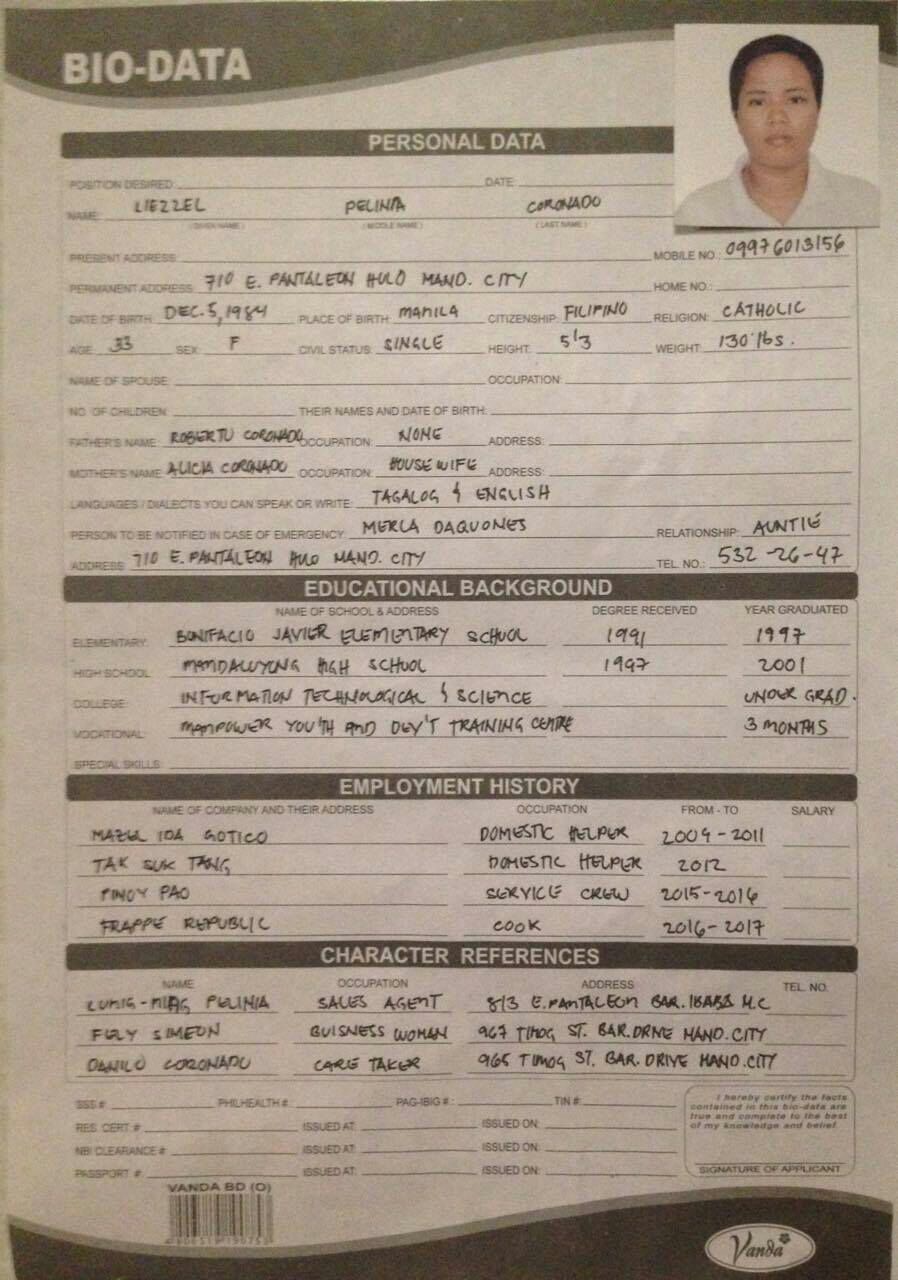 BIO-DATA
PERSONAL DATA
POSITION DESIRED: DATE:
NAME: LIEZZEL PELINIA CORONADO
(GIVEN NAME) (MIDDLE NAME) (LAST NAME)
PRESENT ADDRESS: MOBILE NO.: 09976013156
PERMANENT ADDRESS: 710 E. PANTALEON HULO MAND. CITY HOME NO.:
DATE OF BIRTH: DEC. 5, 1984 PLACE OF BIRTH: MANILA CITIZENSHIP: FILIPINO RELIGION: CATHOLIC
AGE: 33 SEX: F CIVIL STATUS: SINGLE HEIGHT: 5'3 WEIGHT: 130 lbs.
NAME OF SPOUSE: OCCUPATION:
NO. OF CHILDREN: THEIR NAMES AND DATE OF BIRTH:
FATHER'S NAME: ROBERTO CORONADO OCCUPATION: NONE ADDRESS:
MOTHER'S NAME: ALICIA CORONADO OCCUPATION: HOUSEWIFE ADDRESS:
LANGUAGES / DIALECTS YOU CAN SPEAK OR WRITE: TAGALOG & ENGLISH
PERSON TO BE NOTIFIED IN CASE OF EMERGENCY: MERLA DAQUONES RELATIONSHIP: AUNTIE
ADDRESS: 710 E. PANTALEON HULO MAND. CITY TEL. NO.: 532-26-47
EDUCATIONAL BACKGROUND
NAME OF SCHOOL & ADDRESS DEGREE RECEIVED YEAR GRADUATED
ELEMENTARY: BONIFACIO JAVIER ELEMENTARY SCHOOL 1991 1997
HIGH SCHOOL: MANDALUYONG HIGH SCHOOL 1997 2001
COLLEGE: INFORMATION TECHNOLOGICAL & SCIENCE UNDER GRAD.
VOCATIONAL: MANPOWER YOU'TH AND DEV'T TRAINING CENTRE 3 MONTHS
SPECIAL SKILLS:
EMPLOYMENT HISTORY
NAME OF COMPANY AND THEIR ADDRESS OCCUPATION FROM - TO SALARY
MAZEL IDA GOTICO DOMESTIC HELPER 2009-2011
TAK SUK TANG DOMESTIC HELPER 2012
PINOY PAO SERVICE CREW 2015-2016
FRAPPE REPUBLIC COOK 2016-2017
CHARACTER REFERENCES
NAME OCCUPATION ADDRESS TEL. NO.
PELINIA SALES AGENT 813 E. PANTALEON BAR. IBABA M.C
SIMEON BUISNESS WOMAN 967 TIMOG ST. BAR. DRIVE MAND. CITY
DANILO CORONADO CARE TAKER 965 TIMOG ST. BAR. DRIVE MAND. CITY
SSS # PHILHEALTH #: PAG-IBIG #: TIN #:
RES. CERT. # ISSUED AT: ISSUED ON:
NBI CLEARANCE # ISSUED AT: ISSUED ON:
PASSPORT # ISSUED AT: ISSUED ON:
I hereby certify the facts
contained in this bio-data are
true and complete to the best
of my knowledge and belief.
SIGNATURE OF APPLICANT
VANDA BD (O)
Vanda